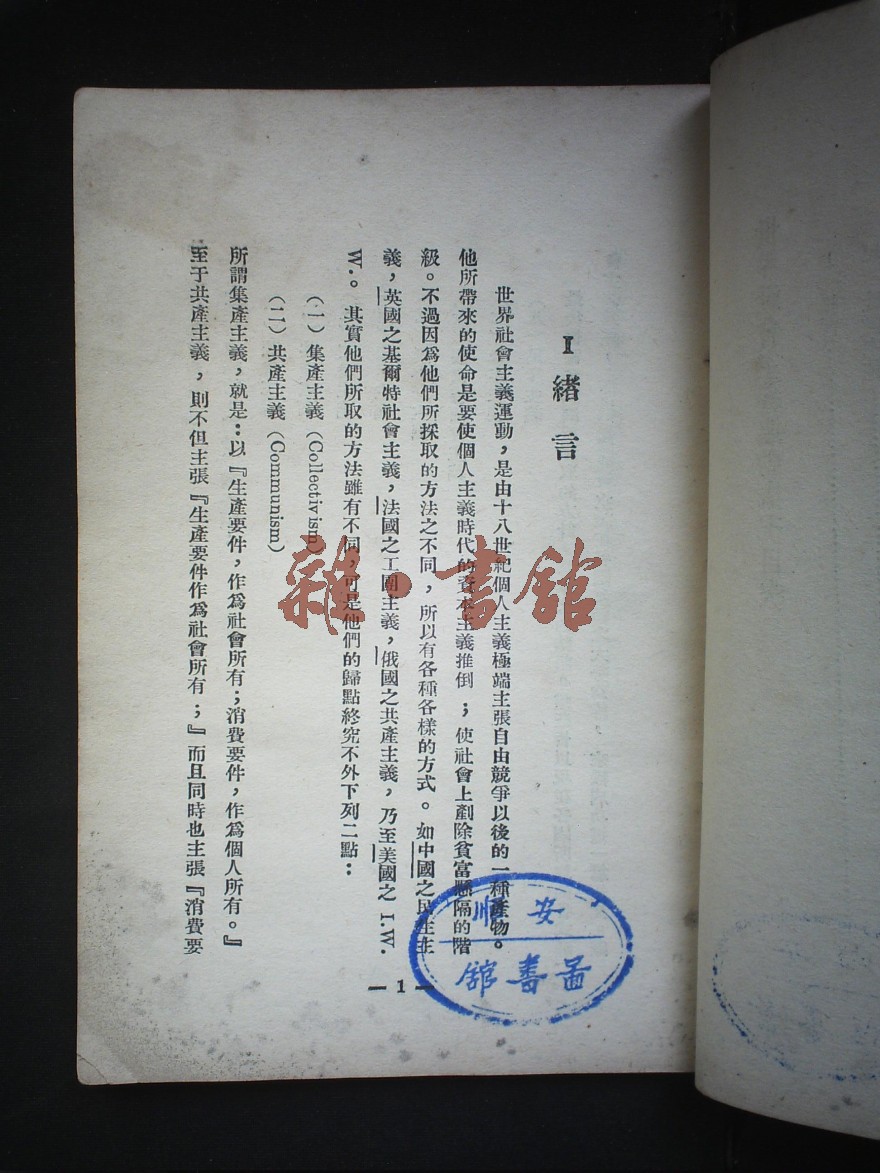 I 緒言
世界社會主義運動，是由十八世紀個人主義極端主張自由競爭以後的一種產物。
他所帶來的使命是要使個人主義時代的資本主義推倒；使社會上剷除貧富懸隔的階
級。不過因爲他們所採取的方法之不同，所以有各種各樣的方式。如中國之民生主
義，英國之基爾特社會主義，法國之工團主義，俄國之共產主義，乃至美國之 I.W.
W.。其實他們所取的方法雖有不同，可是他們的歸點終究不外下列二點：
（一）集產主義（Collectivism）
（二）共產主義（Communism）
所謂集產主義，就是：以『生產要件，作爲社會所有；消費要件，作爲個人所有。』
至于共產主義，則不但主張『生產要件作爲社會所有；』而且同時也主張『消費要
— 1 —
安順
圖書館
雜·書館